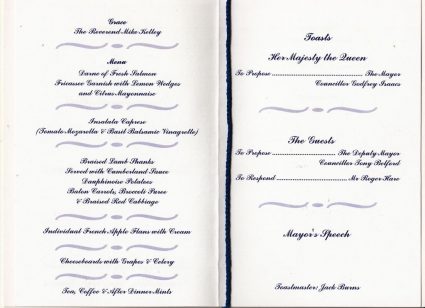 Grace
The Reverend Mike Kelley
Menu
Darne of Fresh Salmon
Fricassee Garnish with Lemon Wedges
and Citrus Mayonnaise
Insalata Caprese
(Tomato Mozarella & Basil Balsamic Vinagrette)
Braised Lamb Shanks
Served with Cumberland Sauce
Dauphinoise Potatoes
Baton Carrots, Broccoli Puree
& Braised Red Cabbiage
Individual French Apple Flans with Cream
Cheeseboards with Grapes & Celery
Tea, Coffee & After Dinner Mints
Toasts
Her Majesty the Queen
To Propose .............................. The Mayor
Councillor Godfrey Isaacs
The Guests
To Propose ..................... The Deputy Mayor
Councillor Tony Belford
To Respond ........................ Mr Roger Hare
Mayor's Speech
Toastmaster: Jack Burns